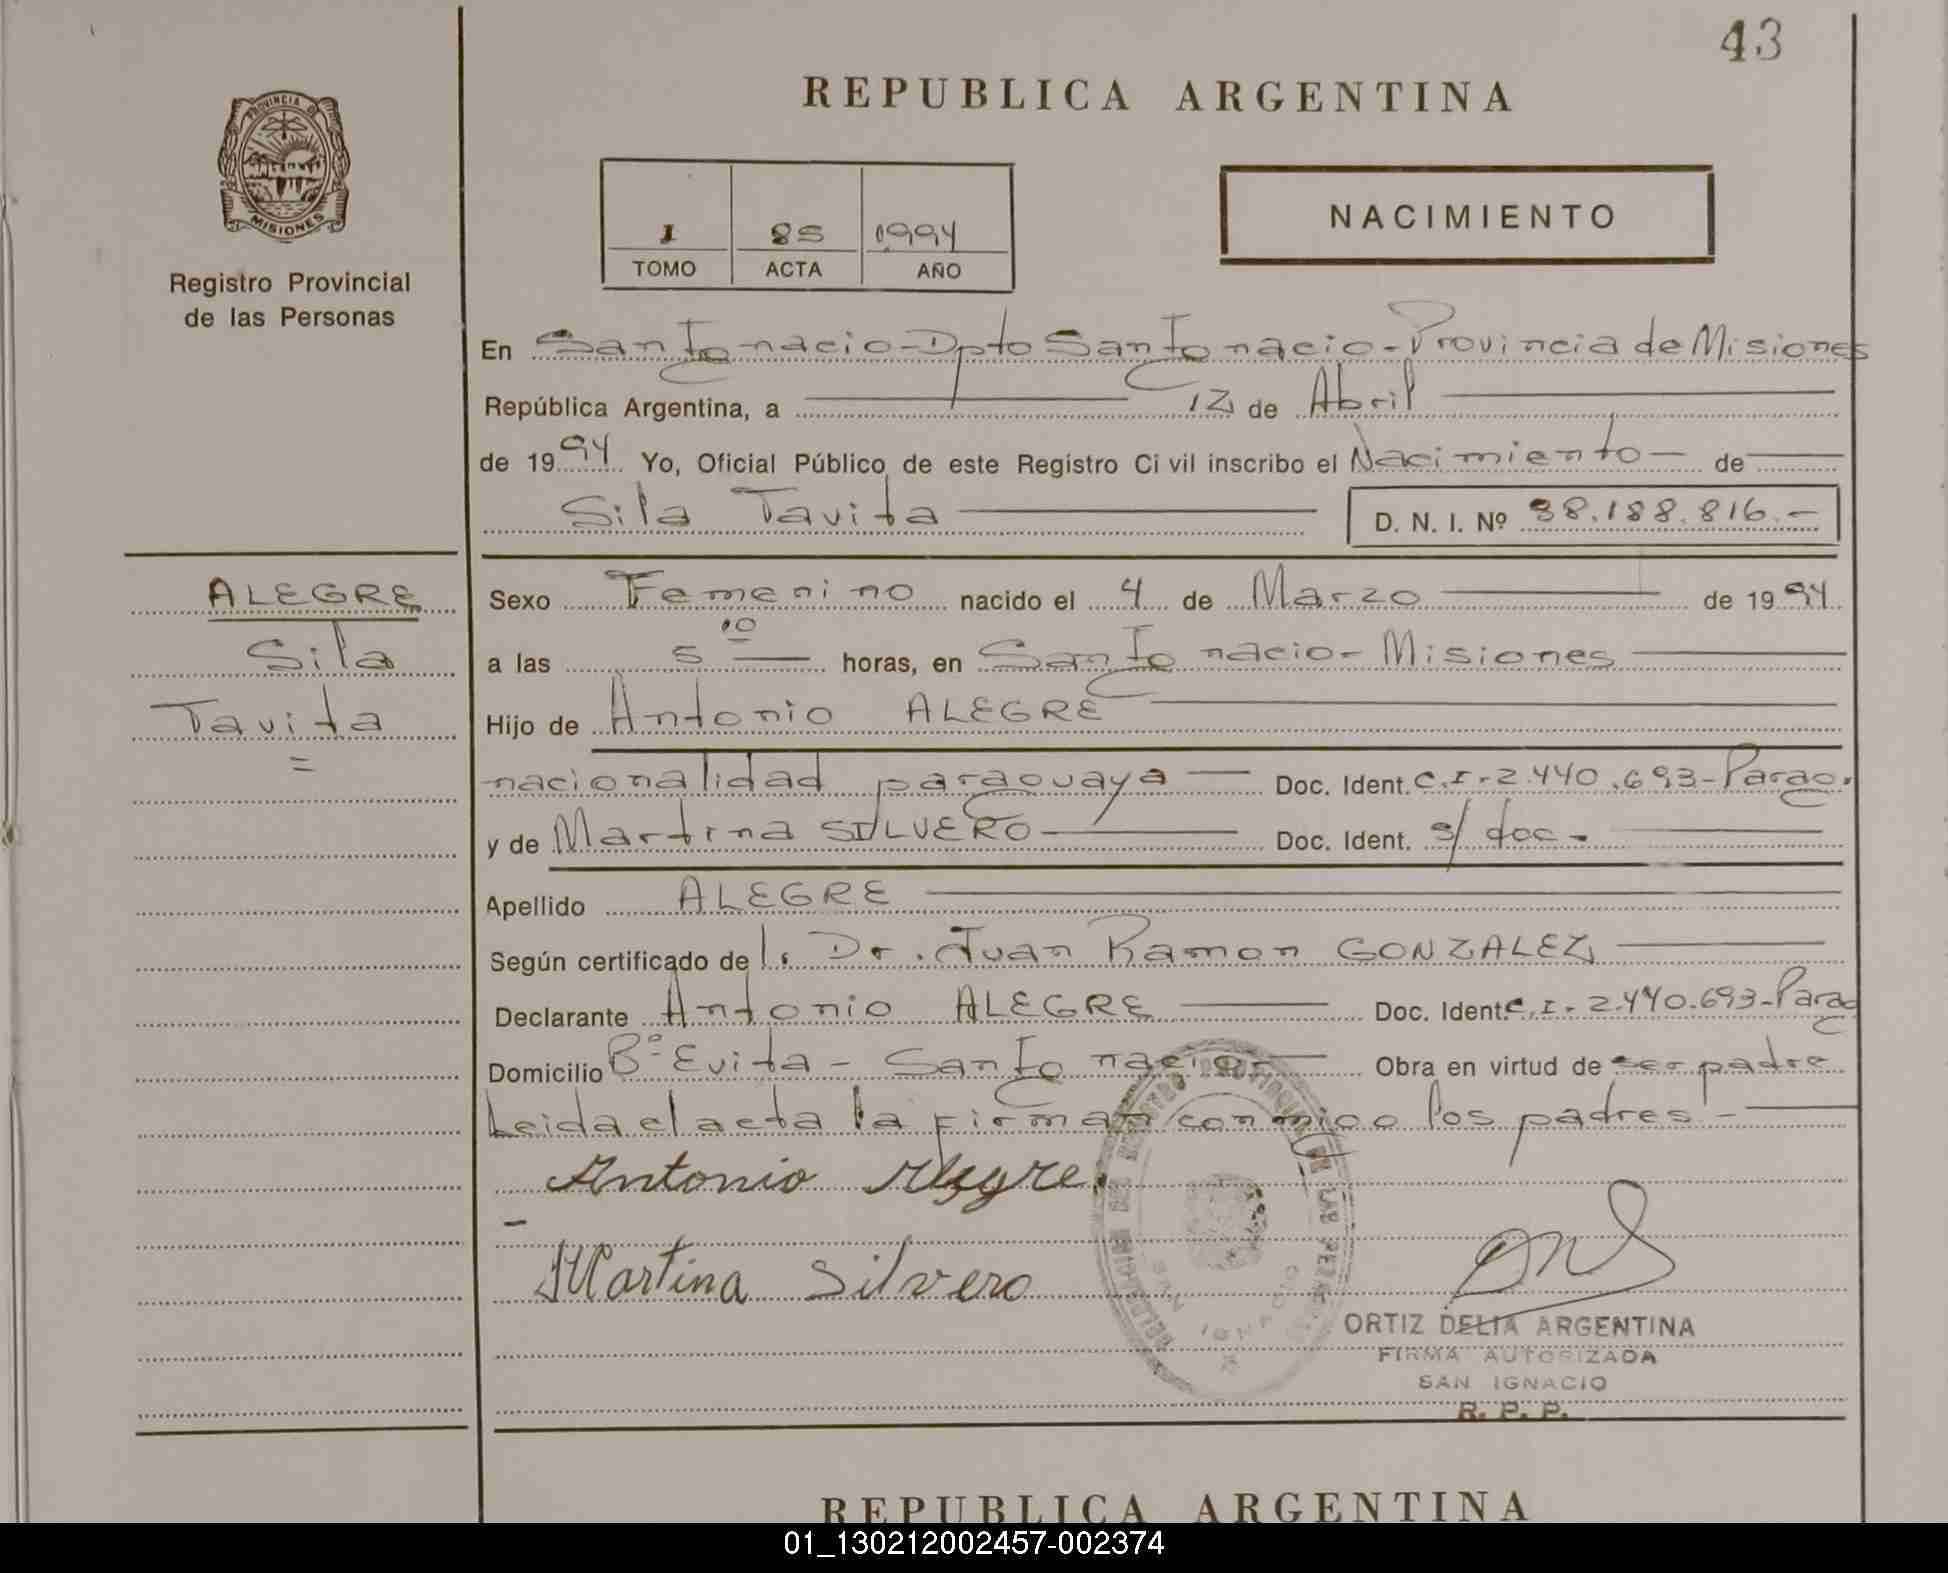 43
REPUBLICA ARGENTINA
PROVINCIA DE
MISIONES
Registro Provincial
de las Personas
1 85 1994
TOMO ACTA AÑO
NACIMIENTO
En San Ignacio - Dpto San Ignacio - Provincia de Misiones
República Argentina, a 12 de Abril
de 1994 Yo, Oficial Público de este Registro Civil inscribo el Nacimiento - de
Sila Tavita D. N. I. Nº 38.188.816.-
ALEGRE
Sila
Tavita
=
Sexo Femenino nacido el 4 de Marzo de 1994
a las 5 10 horas, en San Ignacio - Misiones
Hijo de Antonio ALEGRE
nacionalidad paraguaya Doc. Ident. C.I. 2.440.693 - Parag.
y de Martina SILVERO Doc. Ident. s/ doc -
Apellido ALEGRE
Según certificado de l. Dr. Juan Ramon GONZALEZ
Declarante Antonio ALEGRE Doc. Ident. C.I. 2.440.693 - Parag
Domicilio Bº Evita - San Ignacio - Obra en virtud de ser padre
Leida el acta la firman conmigo los padres! -
Antonio Alegre.
Martina Silvero
SAN IGNACIO
ORTIZ DELIA ARGENTINA
FIRMA AUTORIZADA
SAN IGNACIO
R. P. P.
REPUBLICA ARGENTINA
01_130212002457-002374